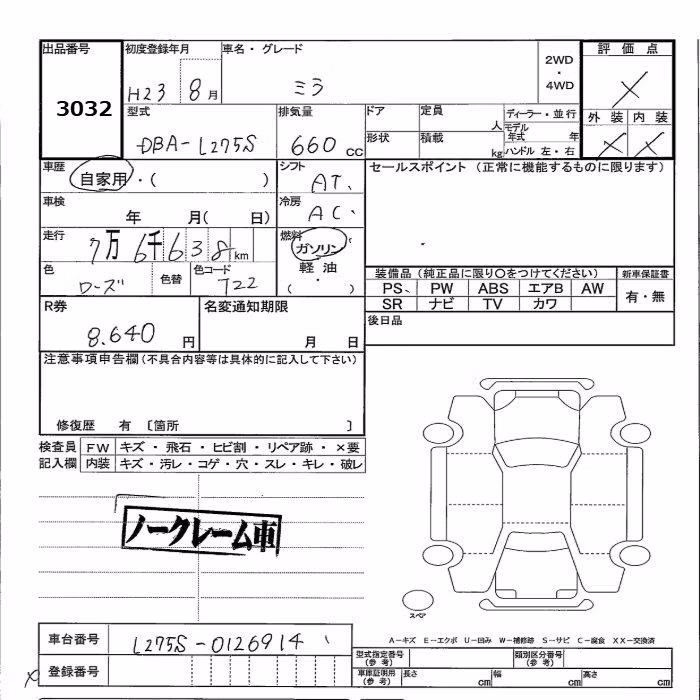 出品番号 初度登録年月 車名・グレード 2WD・4WD 評価点
3032 H23 8月 ミラ ×
型式 排気量 ドア 定員 人 ディーラー・並行 外装 内装
DBA-L275S 660cc 形状 積載 kg モデル年式 年 ハンドル 左・右 × ×
車歴 自家用・( ) シフト AT. セールスポイント(正常に機能するものに限ります)
車検 年 月( 日) 冷房 AC.
走行 7万6千638km 燃料 ガソリン 軽油 ・ ( )
色 ローズ 色替 色コード T22 装備品(純正品に限り○をつけてください) 新車保証書
PS PW ABS エアB AW 有・無
SR ナビ TV カワ
R券 8.640円 名変通知期限 月 日 後日品
注意事項申告欄(不具合内容等は具体的に記入して下さい)
修復歴 有 〔箇所 〕
検査員 FW キズ・飛石・ヒビ割・リペア跡・×要
記入欄 内装 キズ・汚レ・コゲ・穴・スレ・キレ・破レ
ノークレーム車
スペア
A-キズ E-エクボ U-凹み W-補修跡 S-サビ C-腐食 XX-交換済
車台番号 L275S-0126914
型式指定番号(参考) 類別区分番号(参考)
登録番号
車庫証明用(参考) 長さ cm 幅 cm 高さ cm